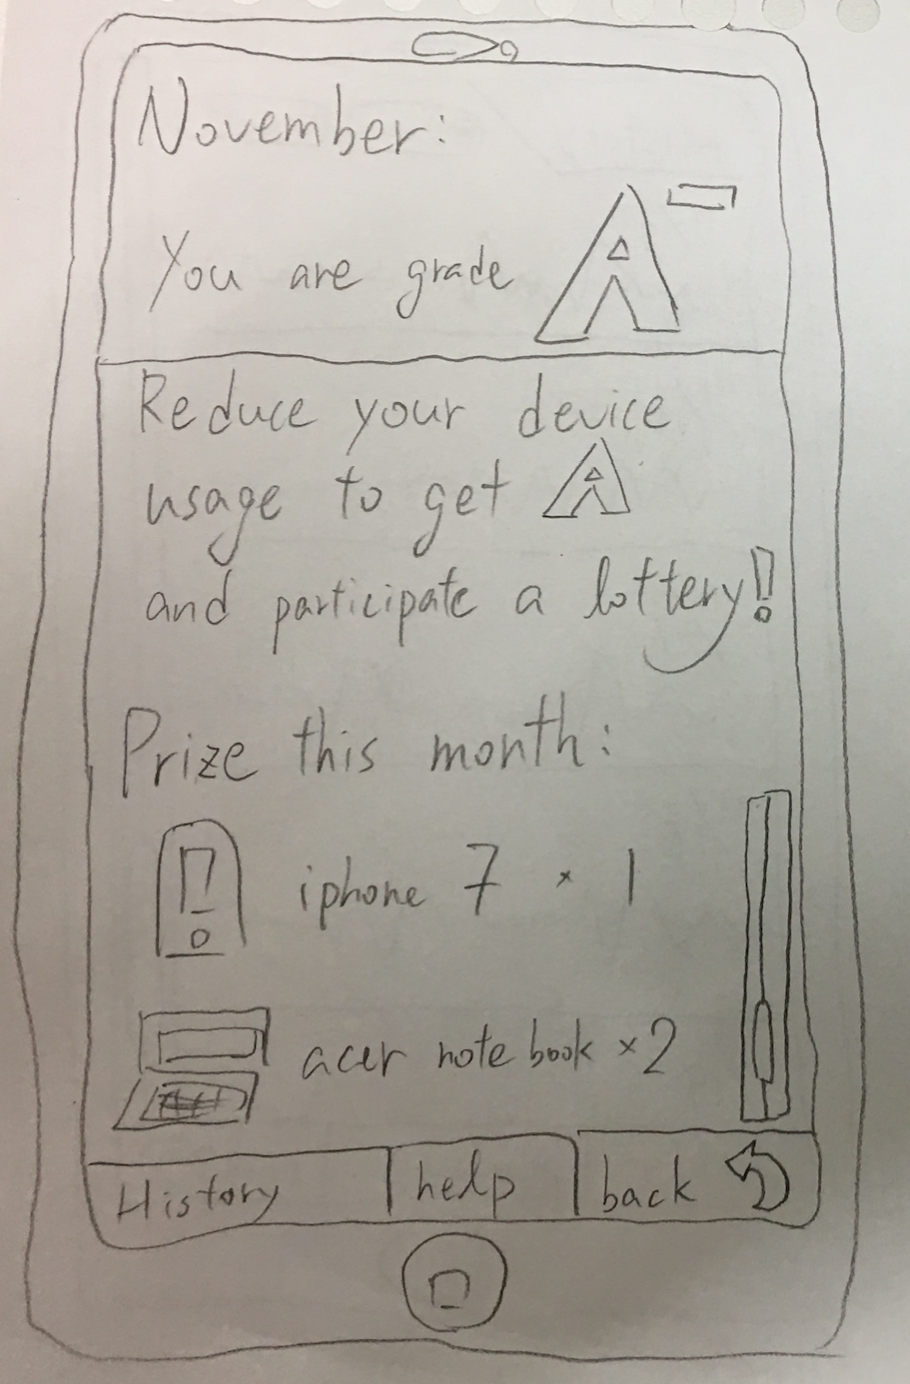 November:
You are grade A-
Reduce your device
usage to get A
and participate a lottery!!
Prize this month:
iphone 7 × 1
acer notebook ×2
History help back